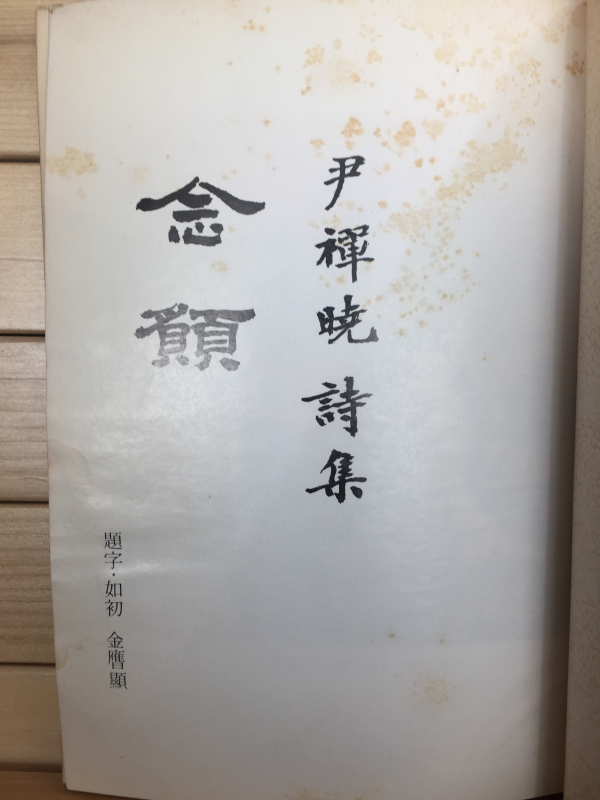 尹禪曉詩集
念願
題字·如初 金膺顯